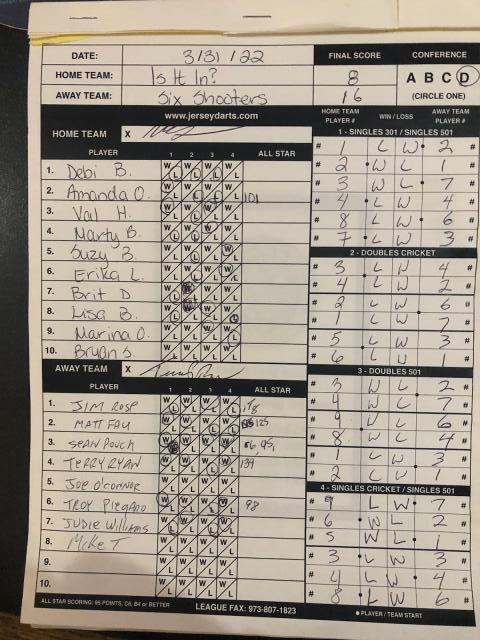 DATE: 3/31/22 FINAL SCORE CONFERENCE
HOME TEAM: Is It In? 8 A B C D
AWAY TEAM: Six Shooters 16 (CIRCLE ONE)
www.jerseydarts.com HOME TEAM PLAYER # WIN / LOSS AWAY TEAM PLAYER #
HOME TEAM X
1 - SINGLES 301 / SINGLES 501
PLAYER 1 2 3 4 ALL STAR
# 1 L W 2 #
# 2 W L 1 #
# 3 W L 7 #
# 4 L W 4 #
# 8 L W 6 #
# 7 L W 3 #
1. Debi B.
2. Amanda O. 101
3. Val H.
4. Marty B.
5. Suzy B.
6. Erika L.
7. Brit D.
8. Lisa B.
9. Marina O.
10. Bryan S.
2 - DOUBLES CRICKET
# 3 L W 4 #
# 4 2 #
# 2 L W 6 #
# 1 7 #
# 5 L W 3 #
# 6 L W 1 #
AWAY TEAM X
PLAYER 1 2 3 4 ALL STAR
3 - DOUBLES 501
# 3 W L 2 #
# 4 W L 7 #
# W L 6 #
# 8 W L 4 #
# 1 L W 3 #
# 2 L W 1 #
1. JIM ROSP
2. MATT FAU 125
3. SEAN POUCH 95,
4. TERRY RYAN
5. JOE O'CONNOR
6. TROY PIEGARO 98
7. JUDIE WILLIAMS
8. Mike T
9.
10.
4 - SINGLES CRICKET / SINGLES 501
# L W 7 #
# 6 W L 2 #
# 5 W L 1 #
# 3 L W 3 #
# 4 L W 4 #
# 8 L W 6 #
ALL STAR SCORING: 95 POINTS, C6, B4 or BETTER LEAGUE FAX: 973-807-1823 PLAYER / TEAM START